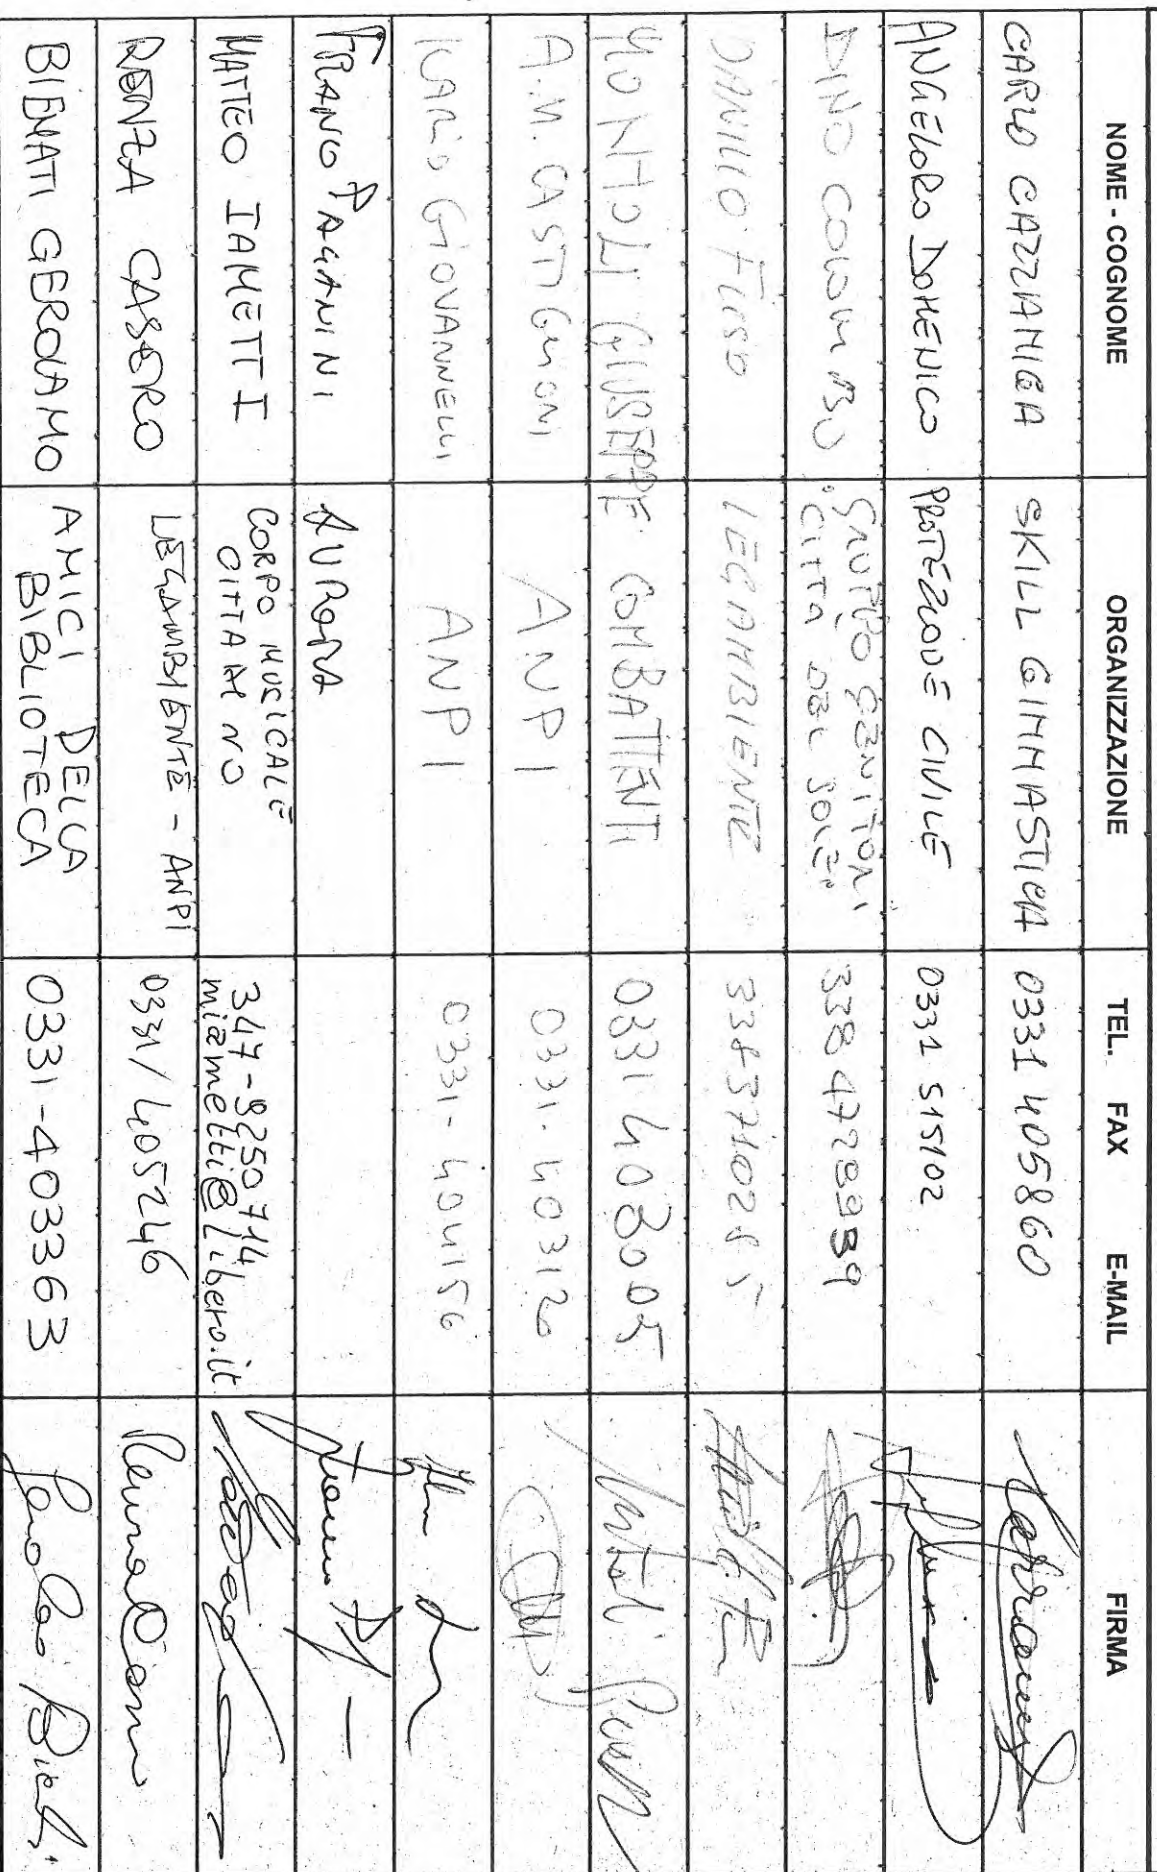 NOME - COGNOME ORGANIZZAZIONE TEL. FAX E-MAIL FIRMA
CARLO CAZZANIGA SKILL GINNASTICA 0331 405860
ANGELORO DOMENICO PROTEZIONE CIVILE 0331 515102
DINO COLOMBO GRUPPO GENITORI 338 4728939
"CITTÀ DEL SOLE"
DANILO FUSO LEGAMBIENTE 3383710285
MONTOLI GIUSEPPE COMBATTENTI 0331 403005
A.M. CASTIGLIONI ANPI 0331. 403120
ILARIO GIOVANNELLI ANPI 0331- 404156
FRANCO PAGANINI AURORA
MATTEO IAMETTI CORPO MUSICALE 347-9250714
CITTADINO miametti@libero.it
RENZA CASERO LEGAMBIENTE - ANPI 0331/405246
BIENATI GEROLAMO AMICI DELLA 0331-403363
BIBLIOTECA